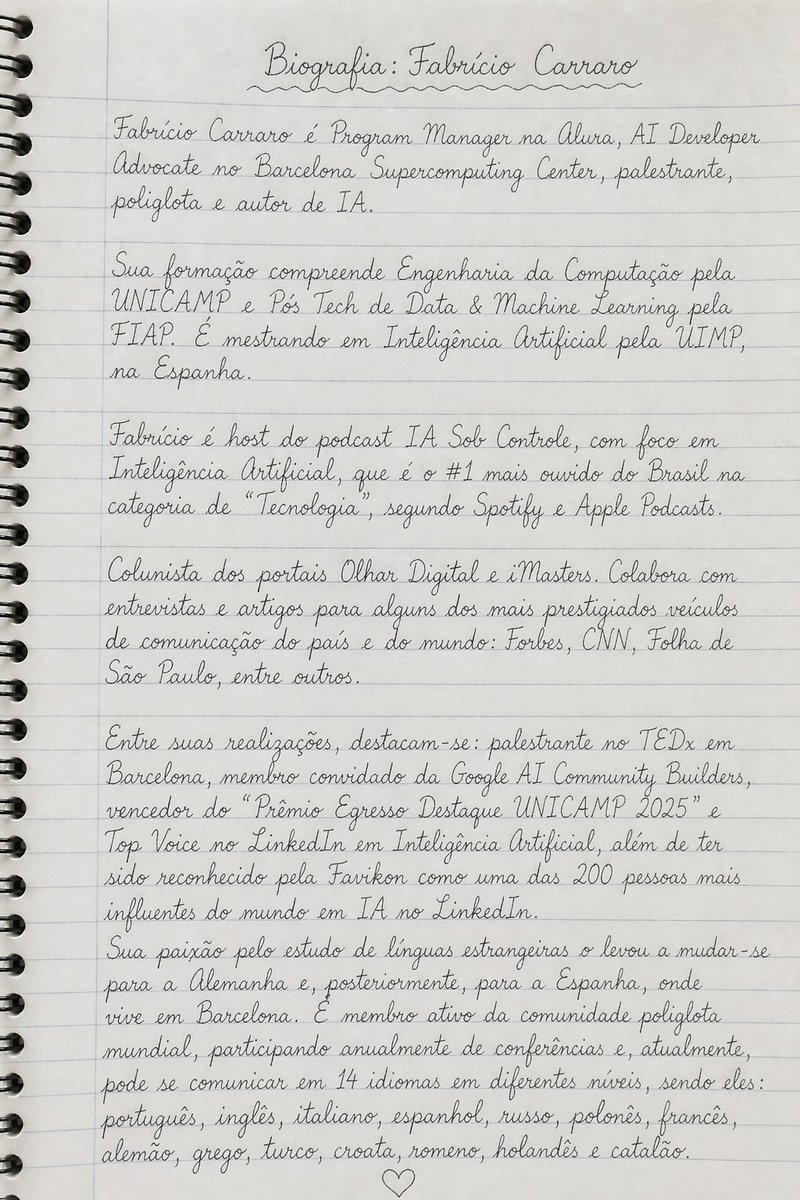 Biografia: Fabrício Carraro
Fabrício Carraro é Program Manager na Alura, AI Developer
Advocate no Barcelona Supercomputing Center, palestrante,
poliglota e autor de IA.
Sua formação compreende Engenharia da Computação pela
UNICAMP e Pós Tech de Data & Machine Learning pela
FIAP. É mestrando em Inteligência Artificial pela UIMP,
na Espanha.
Fabrício é host do podcast IA Sob Controle, com foco em
Inteligência Artificial, que é o #1 mais ouvido do Brasil na
categoria de “Tecnologia”, segundo Spotify e Apple Podcasts.
Colunista dos portais Olhar Digital e iMasters. Colabora com
entrevistas e artigos para alguns dos mais prestigiados veículos
de comunicação do país e do mundo: Forbes, CNN, Folha de
São Paulo, entre outros.
Entre suas realizações, destacam-se: palestrante no TEDx em
Barcelona, membro convidado da Google AI Community Builders,
vencedor do “Prêmio Egresso Destaque UNICAMP 2025” e
Top Voice no LinkedIn em Inteligência Artificial, além de ter
sido reconhecido pela Favikon como uma das 200 pessoas mais
influentes do mundo em IA no LinkedIn.
Sua paixão pelo estudo de línguas estrangeiras o levou a mudar-se
para a Alemanha e, posteriormente, para a Espanha, onde
vive em Barcelona. É membro ativo da comunidade poliglota
mundial, participando anualmente de conferências e, atualmente,
pode se comunicar em 14 idiomas em diferentes níveis, sendo eles:
português, inglês, italiano, espanhol, russo, polonês, francês,
alemão, grego, turco, croata, romeno, holandês e catalão.